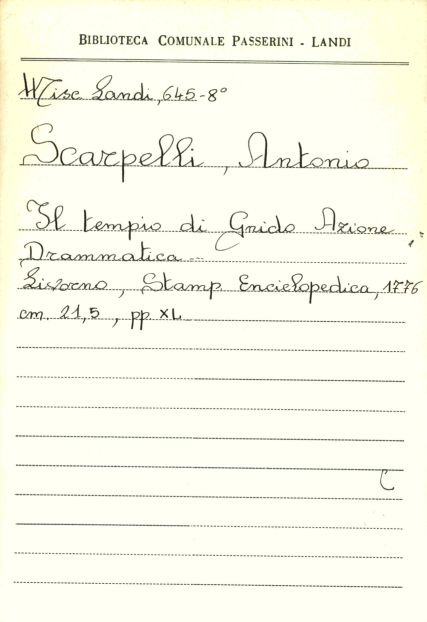 BIBLIOTECA COMUNALE PASSERINI - LANDI
Misc Landi, 645-8°
Scarpelli, Antonio
Il tempio di Gnido Azione
Drammatica --
Livorno, Stamp Enciclopedica, 1776
cm. 21,5, pp. XL
C